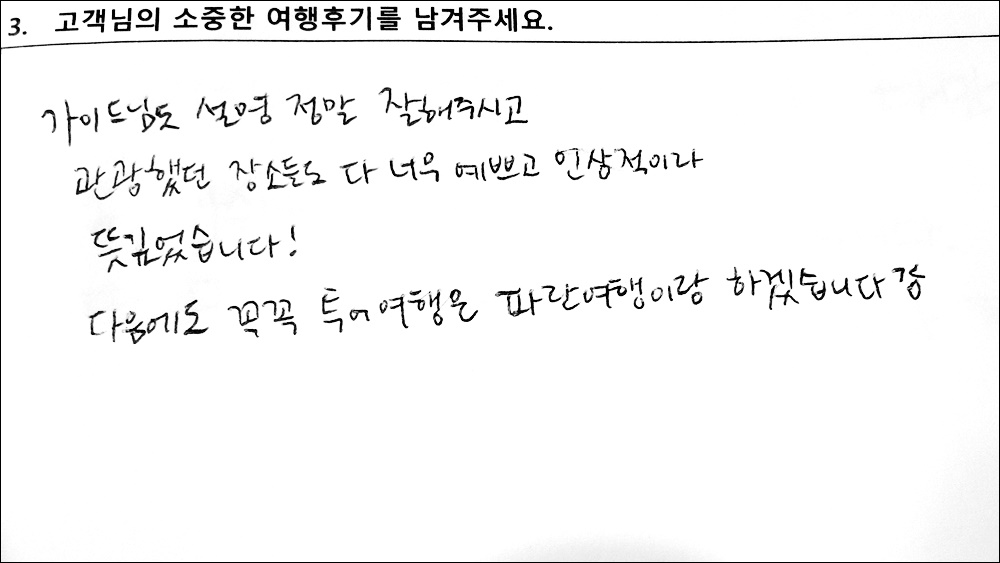 3. 고객님의 소중한 여행후기를 남겨주세요.
가이드님도 설명 정말 잘해주시고
관광했던 장소들도 다 너무 예쁘고 인상적이라
뜻깊었습니다!
다음에도 꼭꼭 투어여행은 파란여행이랑 하겠습니다